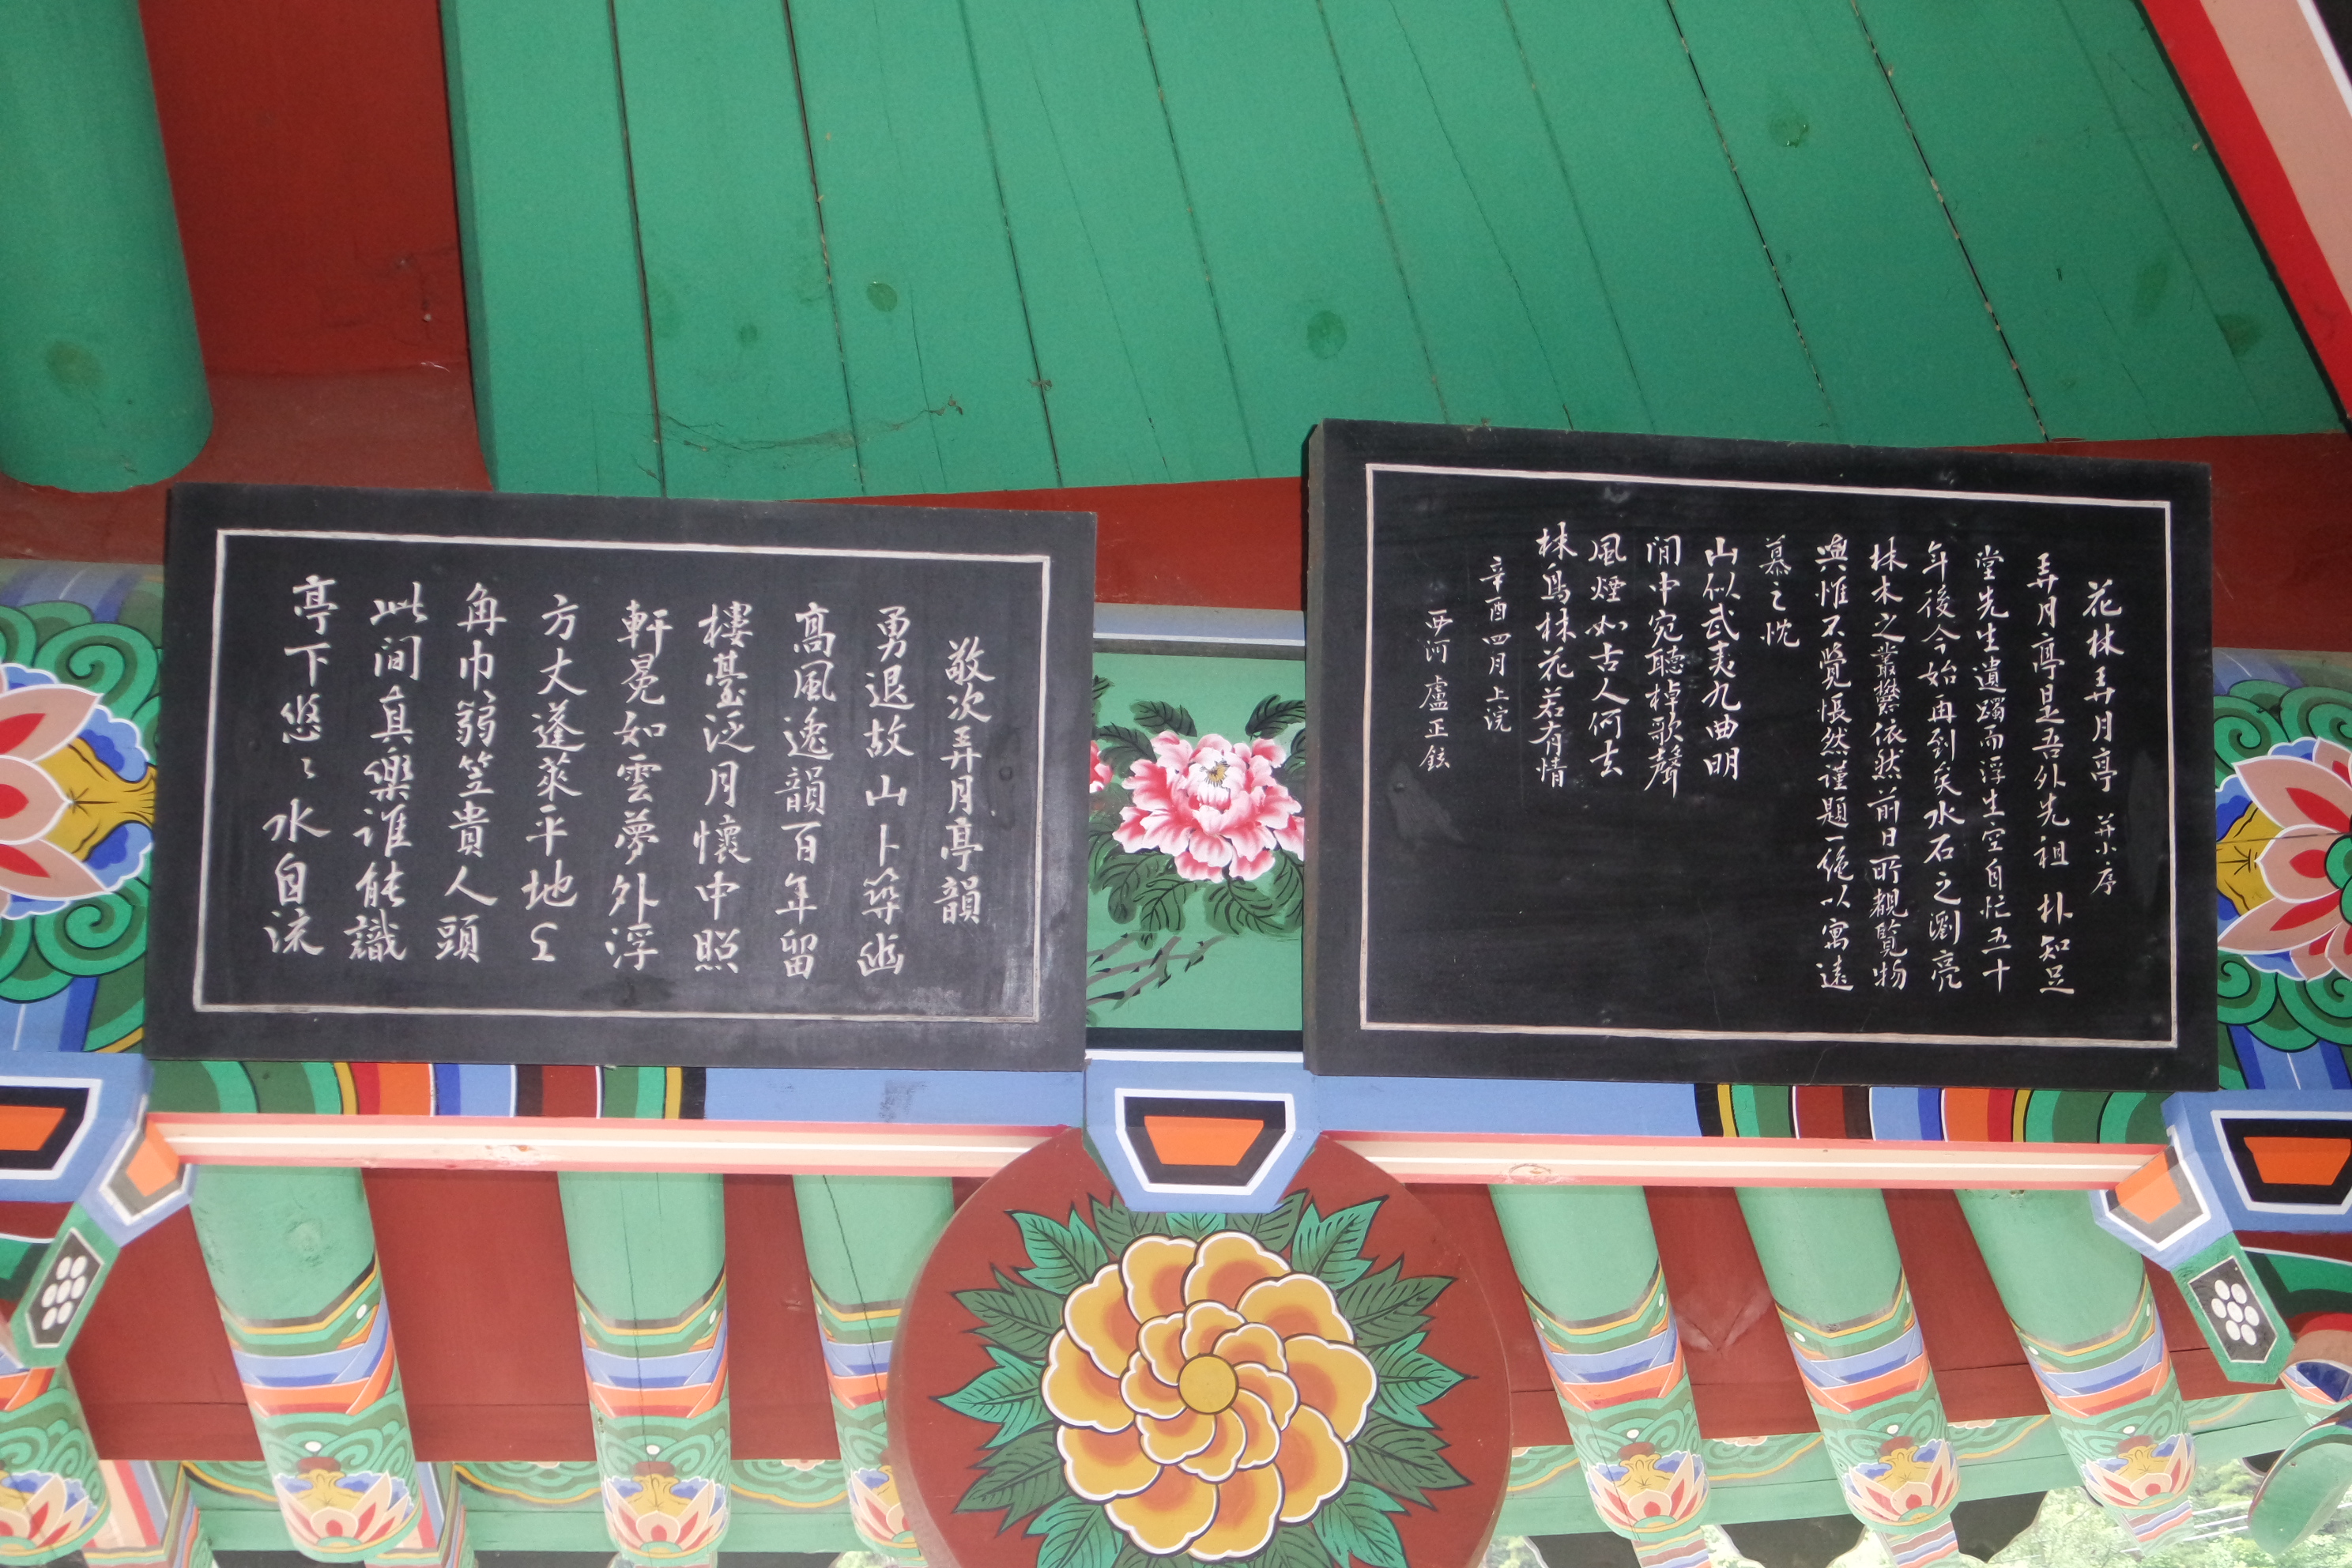 花林弄月亭 并小序
弄月亭是吾外先祖 朴知足
堂先生遺躅而浮生空自忙五十
年後今始再到矣水石之瀏亮
林木之叢欝依然前日所覩覧物
與惟不覺悵然谨題一絶以寓遠
慕之忱
山似武夷九曲明
閒中宛聴棹歌聲
風煙如古人何去
林鳥林花若有情
辛酉四月上浣
西河 盧正鉉
敬次弄月亭韻
勇退故山卜築幽
高風逸韻百年留
樓臺泛月懷中照
軒冕如雲夢外浮
方丈蓬萊平地上
角巾箬笠貴人頭
此间真樂谁能識
亭下悠〻水自流